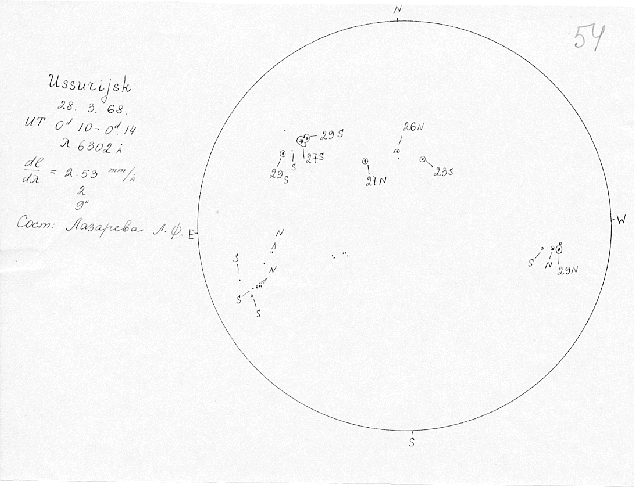 N
54
Ussurijsk
28. 3. 68.
UT 0ᵈ 10 - 0ᵈ 14
λ 6302 Å
dl/dλ = 2.53 mm/Å
2
9"
Сост: Лазарева Л.Ф.
E
W
26N
29S
27S
S
29S
21N
23S
N
S
N
S
S
S
N
29N
S